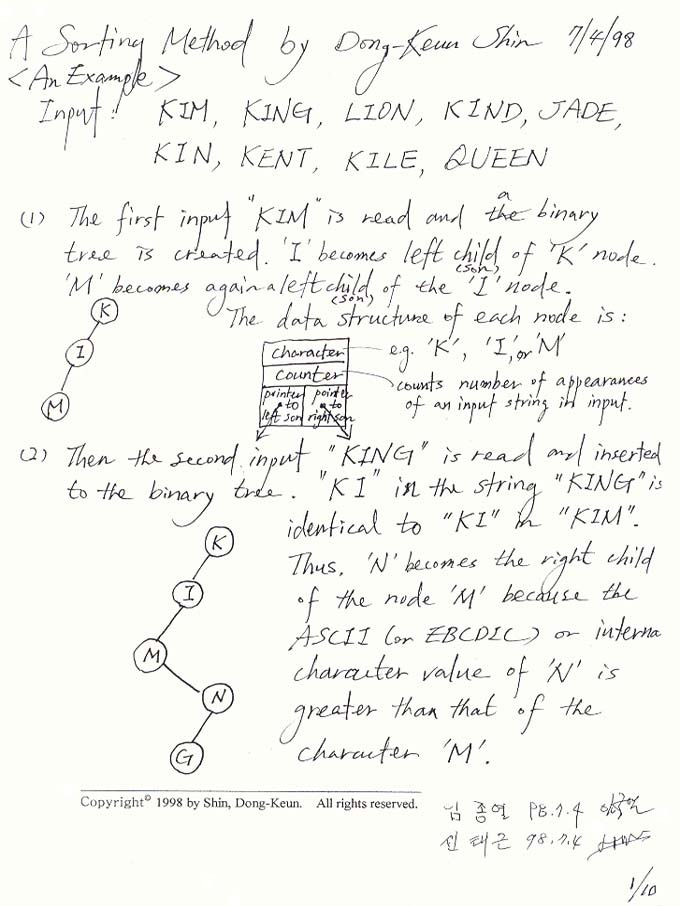 A Sorting Method by Dong-Keun Shin 7/4/98
<An Example>
Input: KIM, KING, LION, KIND, JADE,
KIN, KENT, KILE, QUEEN
(1) The first input "KIM" is read and the a binary
tree is created. 'I' becomes left child (son) of 'K' node.
'M' becomes again a left child (son) of the 'I' node.
The data structure of each node is:
K
I
M
character e.g. 'K', 'I', or 'M'
counter counts number of appearances
of an input string in input.
pointer to left son
pointer to right son
(2) Then the second input "KING" is read and inserted
to the binary tree. "KI" in the string "KING" is
identical to "KI" in "KIM".
Thus, 'N' becomes the right child
of the node 'M' because the
ASCII (or EBCDIC) or interna
character value of 'N' is
greater than that of the
character 'M'.
K
I
M
N
G
Copyright© 1998 by Shin, Dong-Keun. All rights reserved.
임종연 98.7.4
신태근 98.7.4
1/10